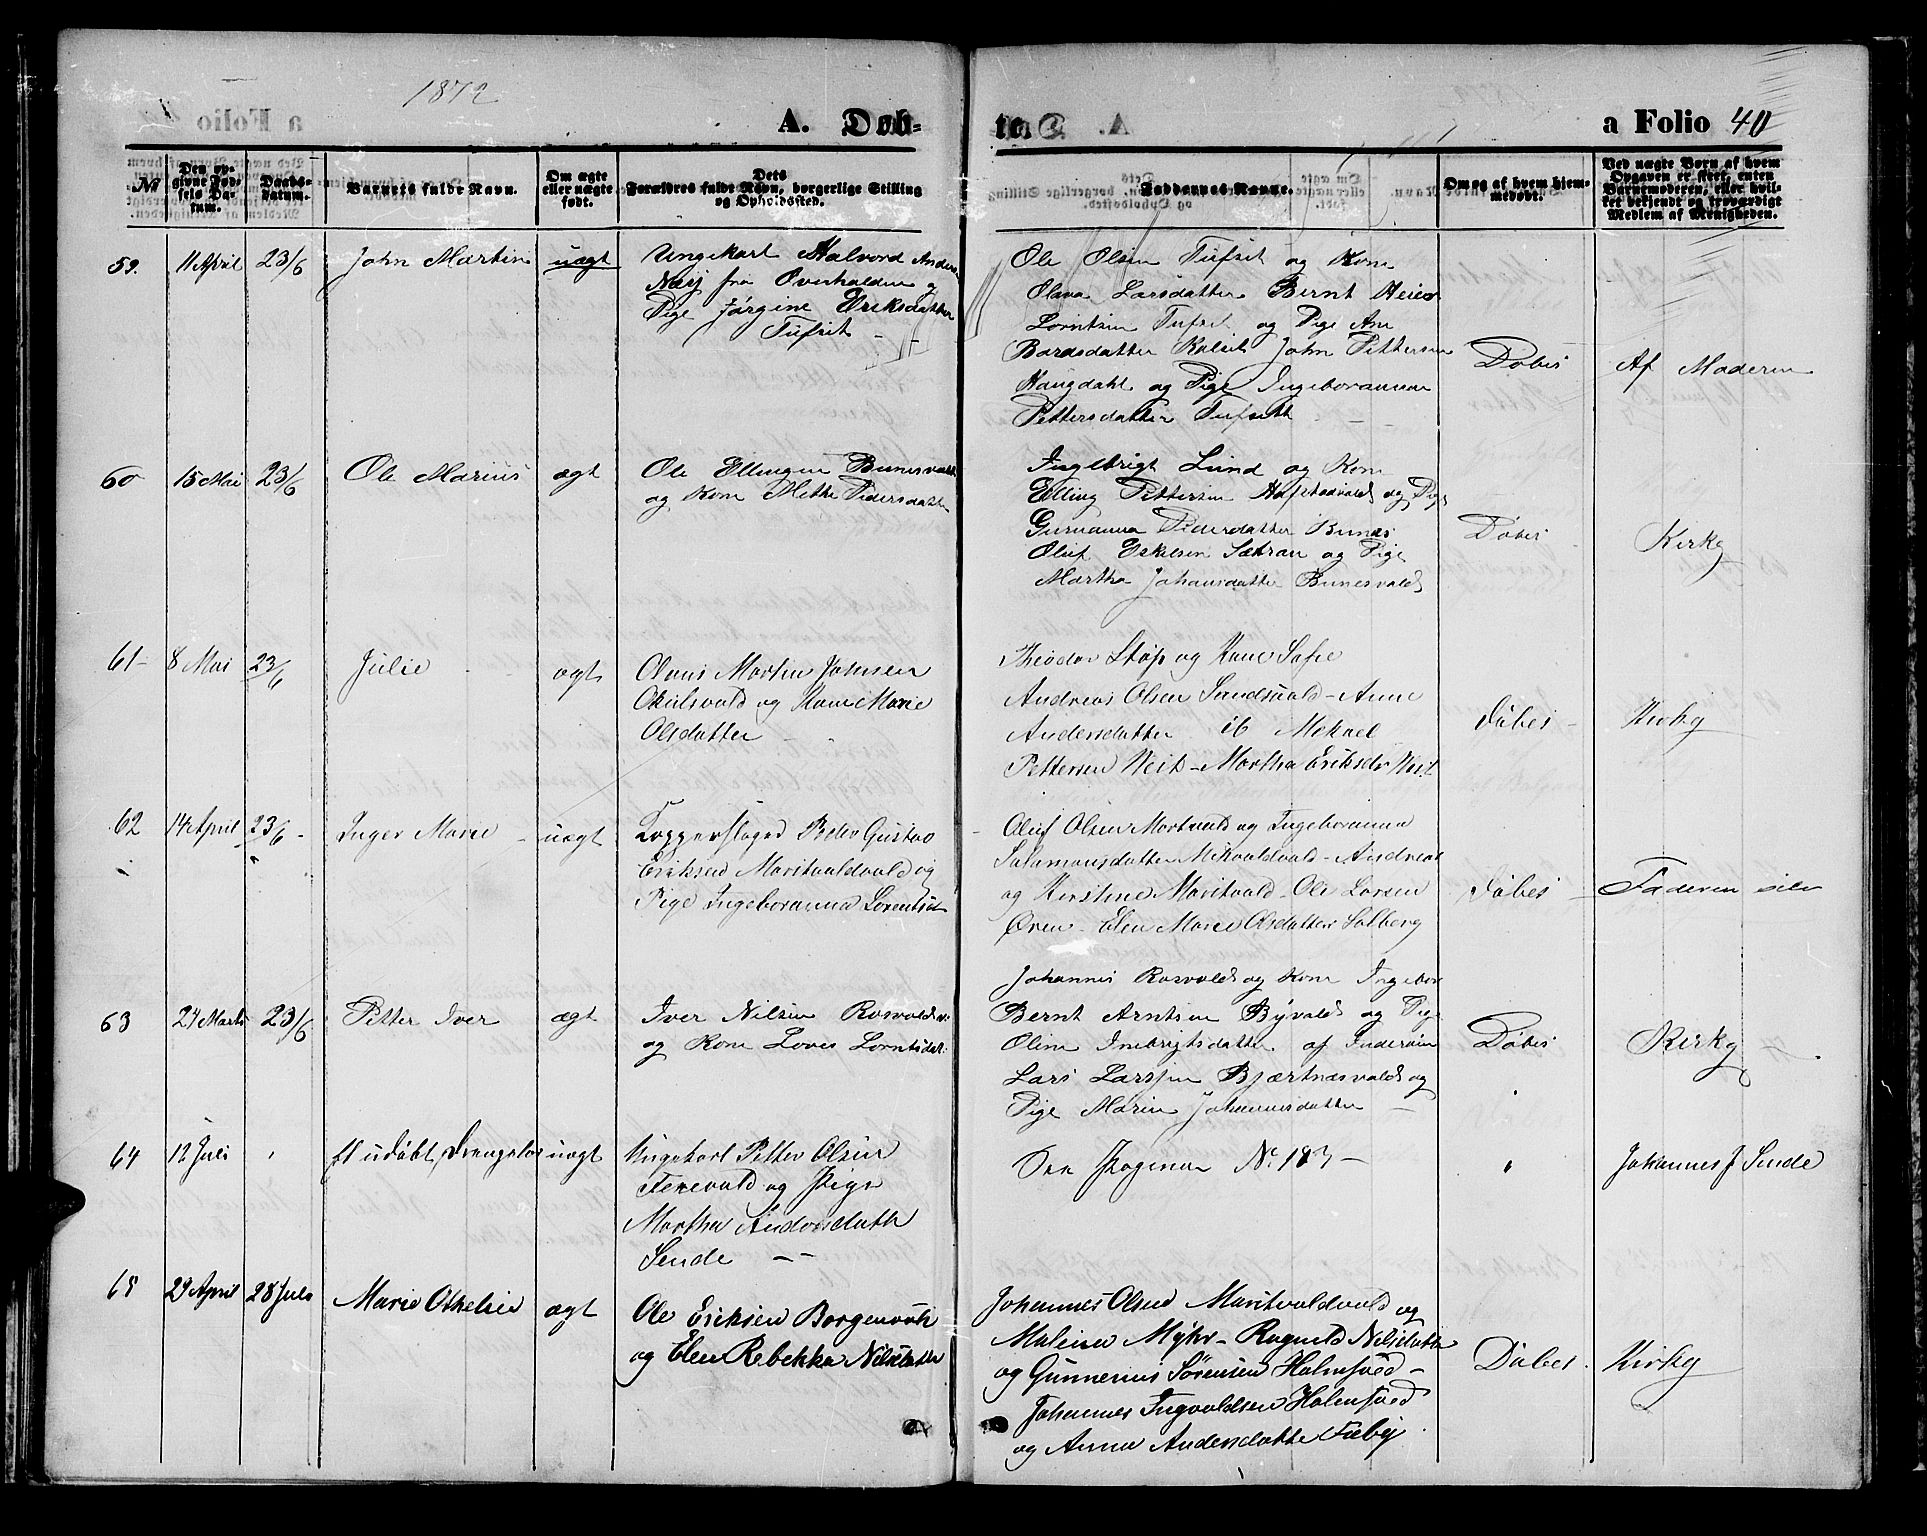 1872
A. Døb-
te.
a Folio 40
No
Den op-
givne Fød-
sels Da-
tum.
Daabs-
Datum.
Barnets fulde Navn.
Om ægte
eller uægte
født.
Dets
Forældres fulde Navn, borgerlige Stilling
og Opholdssted.
Faddernes Navne.
Om og af hvem hjem-
medøbt.
Ved uægte Børn af hvem
Opgaven er skeet, enten
Barnemoderen, eller hvil-
ket bekjendt og troværdigt
Medlem af Menigheden.
59. 11 April 23/6 John Martin uægt
Ungekarl Halvord Anders
Næsj fra Overhalden og
Pige Jørgine Eriksdatter
Tufsit
Ole Olsen Tufsit og Kone
Olava Larsdatter Bernt
Lorntsen Tufsit og Pige Ane
Bardsdatter John Pettersen
Haugdahl og Pige Ingeboranna
Pettersdatter Tufsit
Døbes
Af Moderen
60 15 Mai 23/6 Ole Marius ægt
Ole Ellingsen Bunesvald
og Kone Mette Pedersdatter
Ingebrigt Lund og Kone
Elling Pettersen og Pige
Gurianna Pedersdatter Bunes
Oluf Eskelsen Sætran og Pige
Martha Johansdatter Bunesvald
Døbes
Kirkg
61- 8 Mai 23/6 Julie ægt
Claus Martin Johnsen
og Kone Marie
Olsdatter
Theodor Støp og Kone Sofie
Andreas Olsen Sundsvald - Anne
Andersdatter ib Mekael
Pettersen Veit - Martha Eriksdr Veit
Døbes
Kirkg
62 14 April 23/6 - Inger Marie - uægt
Kopperslager Peder Gustav
Eriksen Maritvaldvald og
Pige Ingeboranna Lorentsdt
Oluf Olsen og Ingeboranna
Salamonsdatter - Andreas
og Kirstine Maritvald - Ole Larsen
Øren - Elen Marie Olsdatter Solberg
Døbes
Faderen selv
63 24 Marts 23/6 Petter Iver ægt
Iver Nilsen Rosvold
og Kone Lorntsdat:
Johannes Rosvold og Kone Ingebor
Bernt Arntsen Byvald og Pige
Oline Inebrigtsdatter af Inderøen
Lars Larssen Bjærtnæsvald og
Pige Marin Johannesdatter
Døbes
Kirkg
64 12 Juli et udøbt Drengebarn uægt
Ungekarl Petter Olsen
og Pige
Martha Andersdatter
Sende
See Pagina No 183 -
Johannes J Sende
65 29 April 28 Juli Marie Othelie ægt
Ole Eriksen Borgenvald
og Elen Rebekka Nilsdatter
Johannes Olsen Maritvaldvald og
Malena Myhr - Nilsdatter
og Gunnerius Sørensen Holmsved -
Johannes Ingvaldsen Holmsved
og Anna Andersdatter Fæby
Døbes.
Kirkg